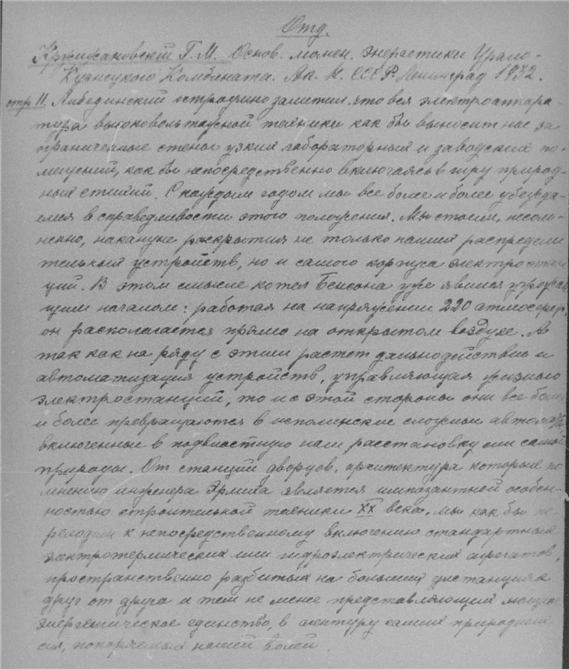 Отд.
Кржижановский Г. М. Основ. момен. энергетики Урало-
Кузнецкого Комбината. Ак. Н. СССР. Ленинград 1932.
стр 11. Либединский остроумно заметил, что вся электроаппара-
тура высоковольтной техники как бы выносит нас за
ограниченные стены узких лабораторных и заводских по-
мещений, как бы непосредственно включаясь в игру природ-
ных стихий. С каждым годом мы все более и более убежда-
емся в справедливости этого положения. Мы стоим, несом-
ненно, накануне раскрытия не только наших распредели
тельных устройств, но и самого корпуса электростан
ций. В этом смысле котел Бенсона уже явился
щим началом: работая на напряжении 220 атмосфер,
он располагается прямо на открытом воздухе. А
так как на ряду с этим растет дальнодействие и
автоматизация устройств, управляющая жизнью
электростанций, то и с этой стороны они все боле
и более превращаются в исполинские сложные
включенные в подвластную нам расстановку сил самой
природы. От станций дворцов, архитектура которых по
мнению инженера является импозантной особен-
ностью строительной техники XX века, мы как бы пе-
реходим к непосредственному включению стандартных
электротермических или гидроэлектрических агрегатов,
пространственно разбитых на больших дистанциях
друг от друга и тем не менее представляющих мощное
энергетическое единство, в самих природных
сил, покоряемых нашей волей